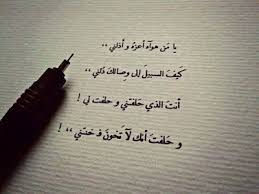 يا مَن هواه أعزه و أذلني ،،
كَيف السبيلَ إلى وصالكَ دُلني ،،
أنتَ الذي حَلفتني و حلفت لي !
و حَلفتَ أنكَ لآ تَخون فـ خنتني ،،، !